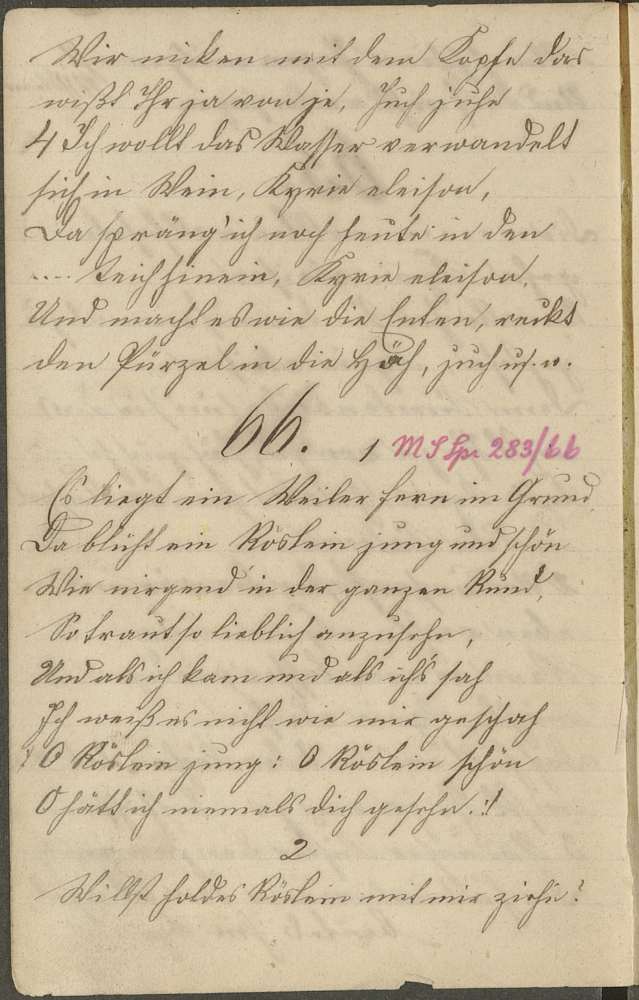 Wir nicken mit dem Kopfe das
wißt Ihr ja von je, Juch juhe
4 Ich wollt das Wasser verwandelt
sich in Wein, Kyrie eleison,
Da spräng' ich noch heute in den
.... Teich hinein, Kyrie eleison.
Und macht es wie die Enten, reckt
den Pürzel in die Höh, juch us. w.
66. 1 MS Spr 283/66
Es liegt ein Weiler fern im Grund
Da blüht ein Röslein jung und schön
Wie nirgend in der ganzen Rund,
So traut so lieblich anzusehn,
Und als ich kam und als ich's sah
Ich weiß es nicht wie mir geschah
: O Röslein jung: O Röslein schön
O hätt ich niemals dich gesehn. :/
2
Willst holdes Röslein mit mir ziehn?